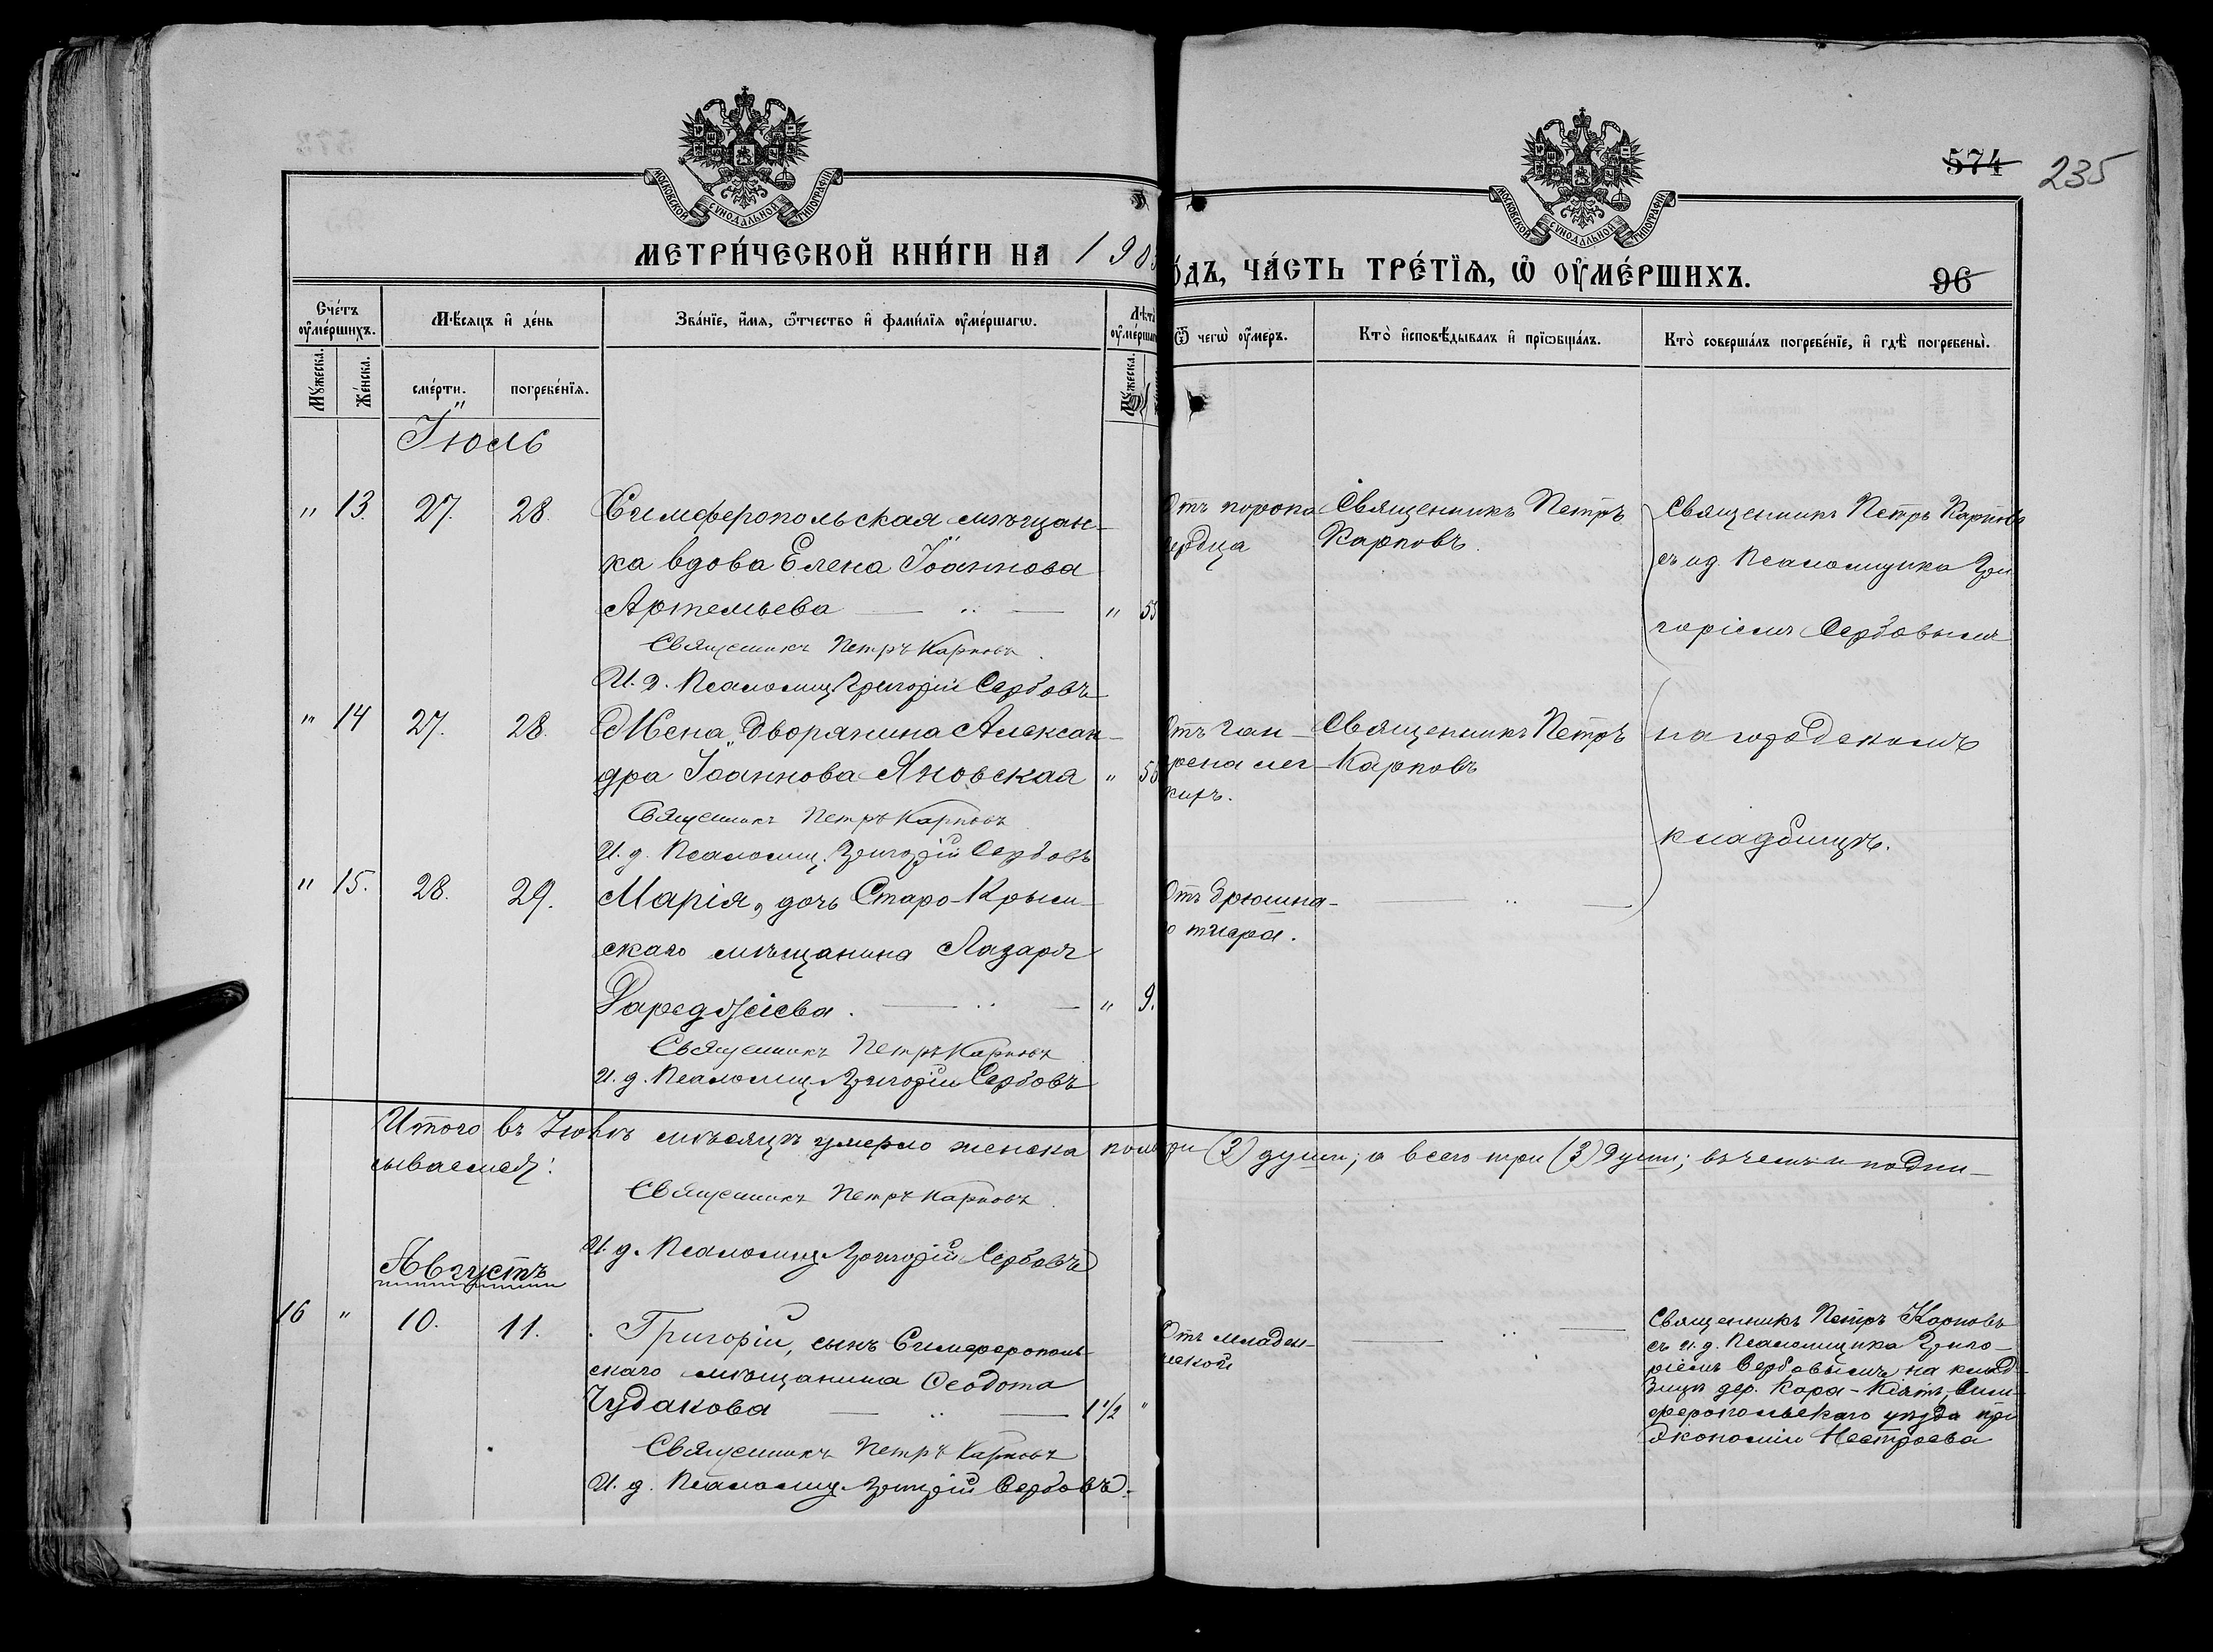 574
235
МОСКОВСКОЙ СѴНОДАЛЬНОЙ ТИПОГРАФІИ
МОСКОВСКОЙ СѴНОДАЛЬНОЙ ТИПОГРАФІИ
МЕТРИ́ЧЕСКОЙ КНИ́ГИ НА 190
ЧА́СТЬ ТРЕ́ТЇѦ, Ѡ҆ ОУ҆МЕ́РШИХЪ.
96
Сче́тъ
оу҆ме́ршихъ.
Мѣ́сяцъ и҆ де́нь
Зва́нїе, и҆́мя, ѻ҆́тчество и҆ фами́лїя оу҆ме́ршагѡ.
Ѿ чегѡ̀ оу҆́меръ.
Кто̀ и҆сповѣ́дывалъ и҆ прїѡбща́лъ.
Кто̀ соверша́лъ погребе́нїе, и҆ гдѣ̀ погребены̀.
Мꙋ́жеска.
Же́нска.
сме́рти.
погребе́нїя.
Мꙋ́жеска.
Іюль
" 13. 27. 28. Симферопольская мѣщан-
ка вдова Елена Іоаннова
Артемьева — " — "
Священникъ Петръ Карповъ.
И. д. Псаломщ. Григорій Сербовъ
Отъ порока
сердца
Священникъ Петръ
Карповъ.
Священникъ Петръ Карповъ
съ и д. Псаломщика Гри
горіемъ Сербовымъ
" 14 27. 28. Жена Дворянина Алексан-
дра Іоаннова Яновская "
Священникъ Петръ Карповъ
И. д. Псаломщ. Григорій Сербовъ
Отъ ган-
рена лег
кихъ.
Священникъ Петръ
Карповъ
на городскомъ
кладбищѣ.
" 15. 28. 29. Марія, дочь Старо-Крым-
скаго мѣщанина Лазаря
— " — " 9.
Священникъ Петръ Карповъ
И. д. Псаломщ. Григорій Сербовъ
Отъ брюшна-
о тифа.
— " —
Итого въ Іюлѣ мѣсяцѣ умерло женска пола три (3) души; а всего три (3) души; въ чемъ и подпи-
сываемся:
Священникъ Петръ Карповъ.
И. д. Псаломщ. Григорій Сербовъ
Августъ
16 " 10. 11. Григорій, сынъ Симферополь-
скаго мѣщанина Ѳеодота
Чудакова — " — 1½ "
Священникъ Петръ Карповъ
И. д. Псаломщ. Григорій Сербовъ.
Отъ младен-
ческой
— " —
Священникъ Петръ Карповъ
съ и. д. Псаломщика Григо-
ріемъ Сербовымъ на клад-
бищѣ дер. Кара-Кіятъ, Сим-
феропольскаго уѣзда при
экономіи Нестроева